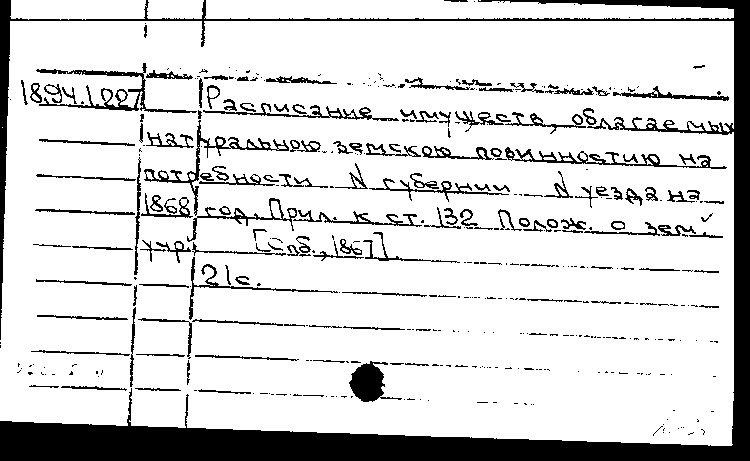 18.94.1.227 Расписание имуществ, облагаемых
натуральною земскою повинностию на
потребности N губернии N уезда на
1868 год. Прил. к ст. 132 Полож. о зем.
учр. [Спб., 1867].
21с.